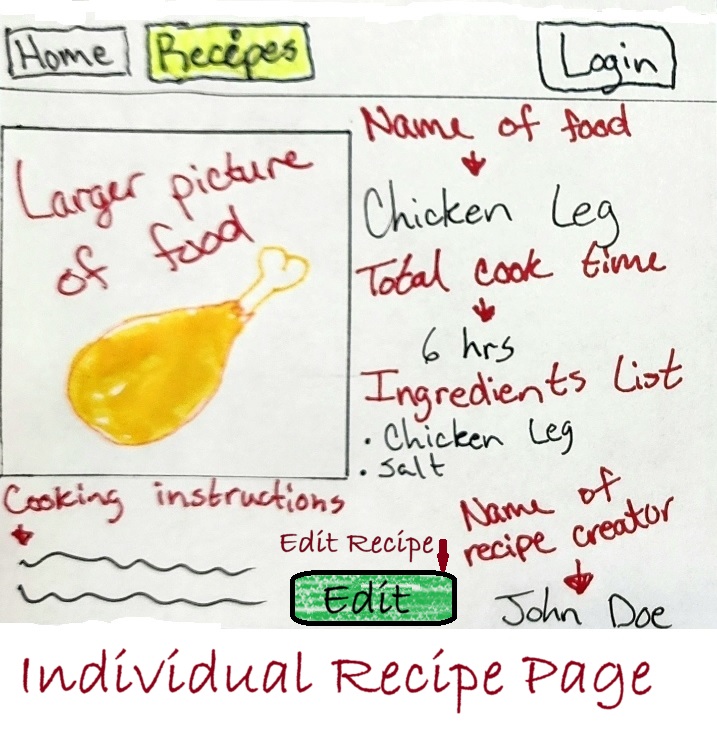 Home Recipes Login
Larger picture
of food
Name of food
Chicken Leg
Total cook time
6 hrs
Ingredients List
• Chicken Leg
• Salt
Cooking instructions
Edit Recipe
Edit
Name of
recipe creator
John Doe
Individual Recipe Page